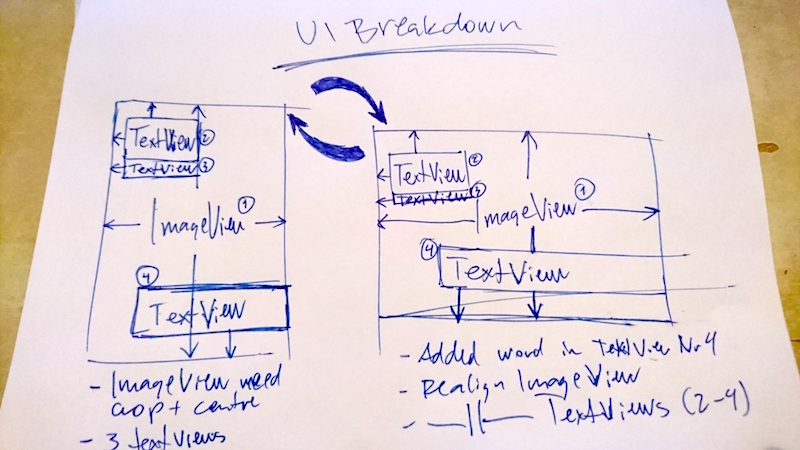 UI Breakdown
TextView 2
TextView 3
ImageView 1
4
TextView
- ImageView need
+ centre
- 3 textViews
TextView 2
TextView 3
ImageView 1
4
TextView
- Added word in TextView Nr 4
- Realign ImageView
- —||— TextViews (2-4)